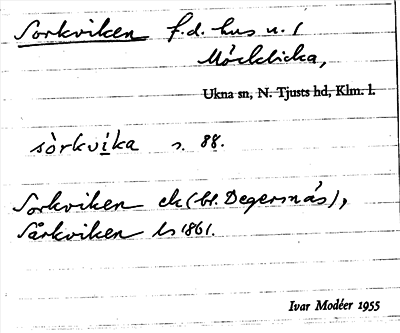 Sorkviken f.d. hus u. /
Mörkhicka,
Ukna sn, N. Tjusts hd, Klm. l.
sòrkvika s. 88.
Sorkviken ek (bl. Degersnäs),
Sårkviken ls 1861.
Ivar Modéer 1955